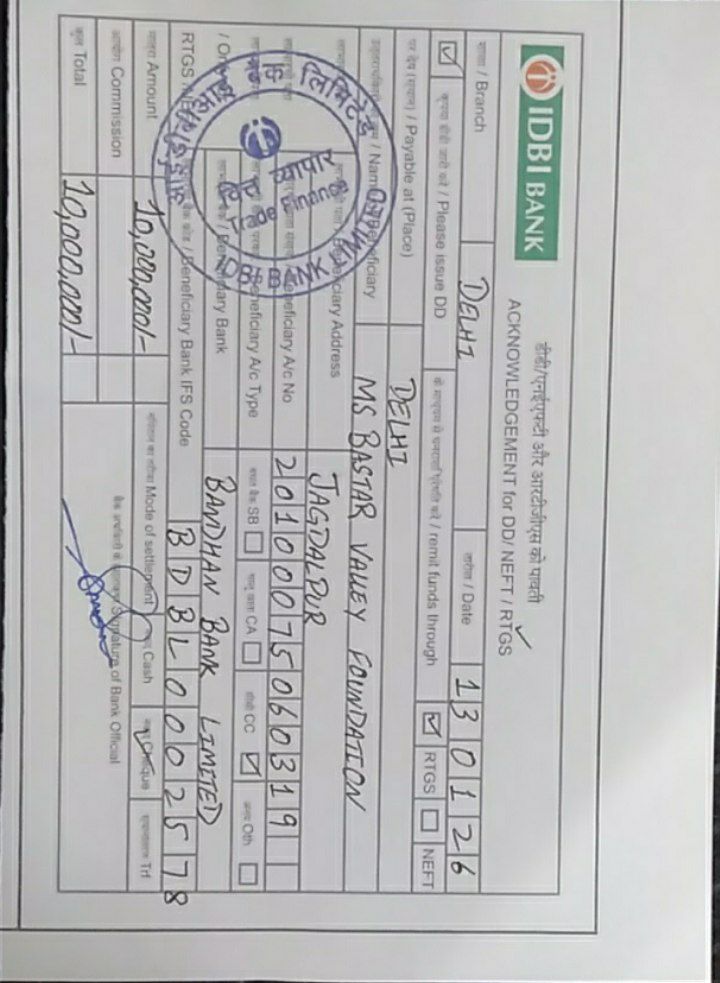 IDBI BANK
डीडी/एनईएफटी और आरटीजीएस की पावती
ACKNOWLEDGEMENT for DD/ NEFT / RTGS
शाखा / Branch DELHI तारीख / Date 130126
कृपया डीडी जारी करें / Please issue DD के माध्यम से धनराशि प्रेषित करें / remit funds through RTGS NEFT
पर देय (स्थान) / Payable at (Place) DELHI
/ Name of Beneficiary MS BASTAR VALLEY FOUNDATION
Beneficiary Address JAGDALPUR
Beneficiary A/c No 20100075060319
Beneficiary A/c Type बचत बैंक SB चालू खाता CA सीसी CC अन्य Oth
/ Beneficiary Bank BANDHAN BANK LIMITED
RTGS / Beneficiary Bank IFS Code BDBL0002578
Amount 10,000,000/- Mode of settlement नकद Cash Cheque Trf
Commission
कुल Total 10,000,000/-
Signature of Bank Official
लिमिटेड
व्यापार
Trade Finance
IDBI BANK LIMITED